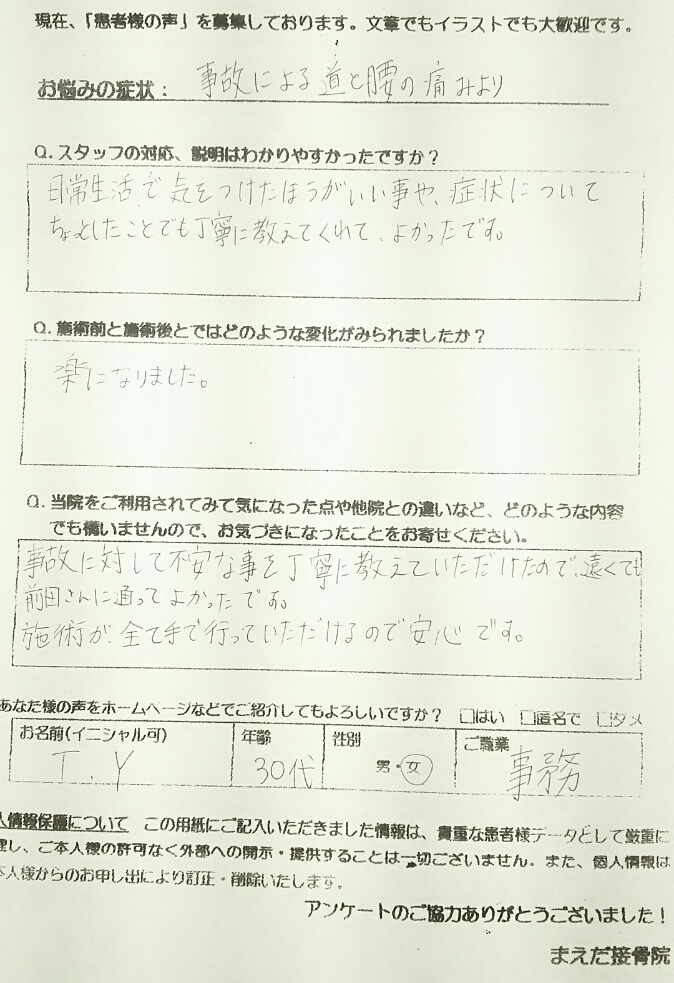 現在、「患者様の声」を募集しております。文章でもイラストでも大歓迎です。
お悩みの症状： 事故による道と腰の痛みより
Q. スタッフの対応、説明はわかりやすかったですか？
日常生活で気をつけたほうがいい事や、症状について
ちょっとしたことでも丁寧に教えてくれて、よかったです。
Q. 施術前と施術後とではどのような変化がみられましたか？
楽になりました。
Q. 当院をご利用されてみて気になった点や他院との違いなど、どのような内容
でも構いませんので、お気づきになったことをお寄せください。
事故に対して不安な事を丁寧に教えていただけたので、遠くても
前田さんに通ってよかったです。
施術が、全て手で行っていただけるので安心です。
あなた様の声をホームページなどでご紹介してもよろしいですか？ □はい □匿名で □ダメ
お名前(イニシャル可) 年齢 性別 ご職業
T.Y 30代 男・女 事務
人情報保護について この用紙にご記入いただきました情報は、貴重な患者様データとして厳重に
理し、ご本人様の許可なく外部への開示・提供することは一切ございません。また、個人情報は
本人様からのお申し出により訂正・削除いたします。
アンケートのご協力ありがとうございました！
まえだ接骨院